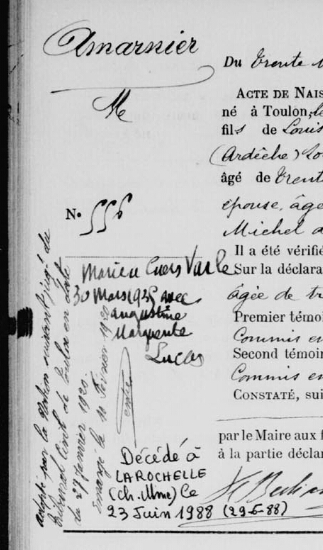 Amarnier
M
N° 556
Marié à Cuers Var le
30 Mars 1935 avec
Augustine
Marguerite
Lucas
adopté par la Nation suivant jugé de
Tribunal Civil de Toulon en date
du 27 janvier 1920.
Février 1920
Décédé à
LAROCHELLE
(Ch. Mme) le
23 Juin 1988 (29-6-88)
Du trente
ACTE DE NAIS
né à Toulon, le
fils de Louis
(Ardèche)
âgé de trent
épouse, âgé
Michel
Il a été vérifié
Sur la déclara
âgée de tr
Premier témoi
Commis en
Second témoin
Commis en
CONSTATÉ, sui
par le Maire aux f
à la partie décla